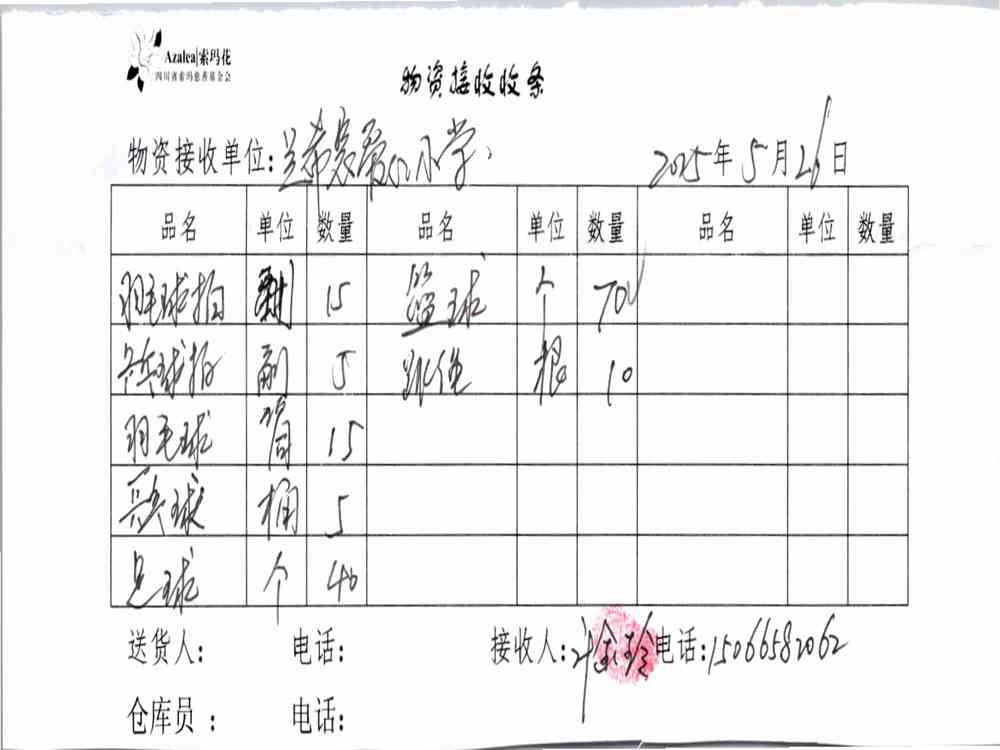 Azalea|索玛花
四川省索玛慈善基金会
物资接收收条
物资接收单位: 小学 2025年5月26日
品名 单位 数量 品名 单位 数量 品名 单位 数量
羽毛球拍 副 15 篮球 个 70
乒乓球拍 副 5 跳绳 根 10
羽毛球 筒 15
乒乓球 桶 5
足球 个 40
送货人: 电话: 接收人: 金珍 电话:15066582062
仓库员: 电话: